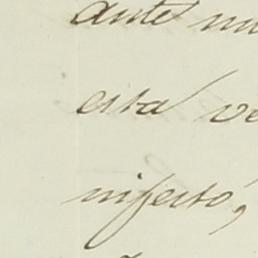 ante m
esta ve
nifestó,